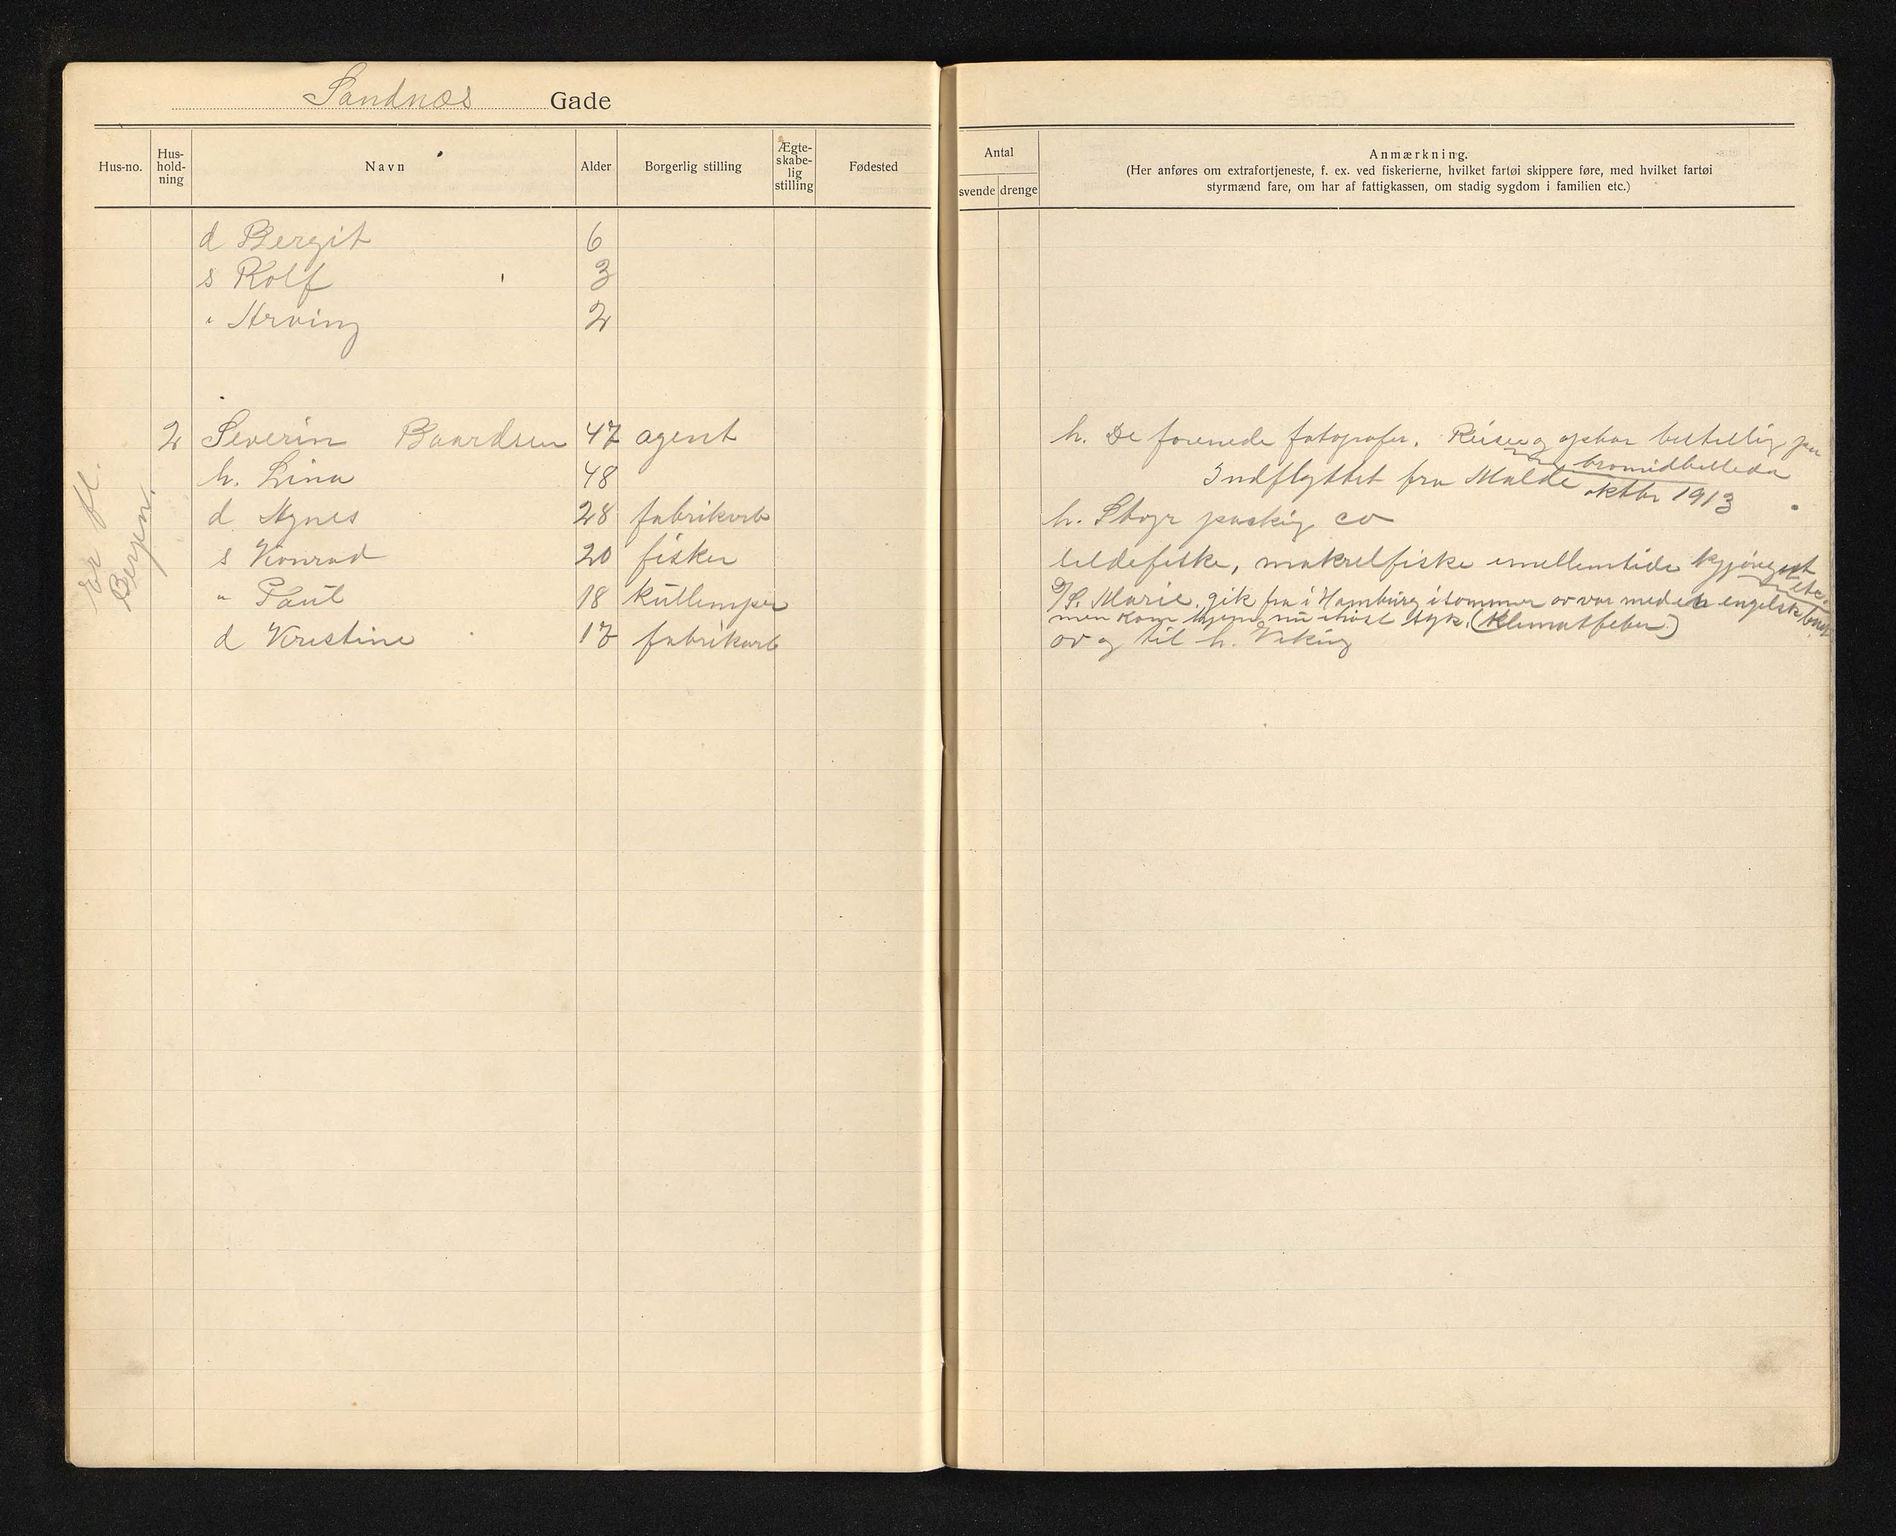 Sandnæs Gade
Hus-no.
Hus-
hold-
ning
Navn
Alder
Borgerlig stilling
Ægte-
skabe-
lig
stilling
Fødested
Antal
svende drenge
Anmærkning.
(Her anføres om extrafortjeneste, f. ex. ved fiskerierne, hvilket fartøi skippere føre, med hvilket fartøi
styrmænd fare, om har af fattigkassen, om stadig sygdom i familien etc.)
d Bergit 6
s Rolf 3
" Arving 2
2 Severin Baardsen 47 agent h. De forenede fotografer. Reiser og optar bestilling paa
bromidbilleder
h. Lina 48 Indflyttet fra Molde oktbr 1913
d Agnes 28 fabrikarb h. Stagr packing co
s Konrad 20 fisker sildefiske, makrelfiske imellemtide
" Paul 18 kullemper D/S. Marie. gik fra i Hamburg isommer ov var med en engelsk
men kom hjem nu ihøst syk. (Klimatfeber)
d Kristine 17 fabrikarb av og til h. Viking
er fl.
Bergen.